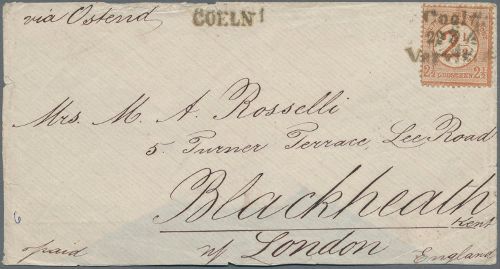 via Ostend
COELN 1
Coeln
2½
2½ GROSCHEN 2½
Mrs. M. A. Rosselli
5. Turner Terrace, Lee Road
Blackheath
Kent
nr London
England
paid
6